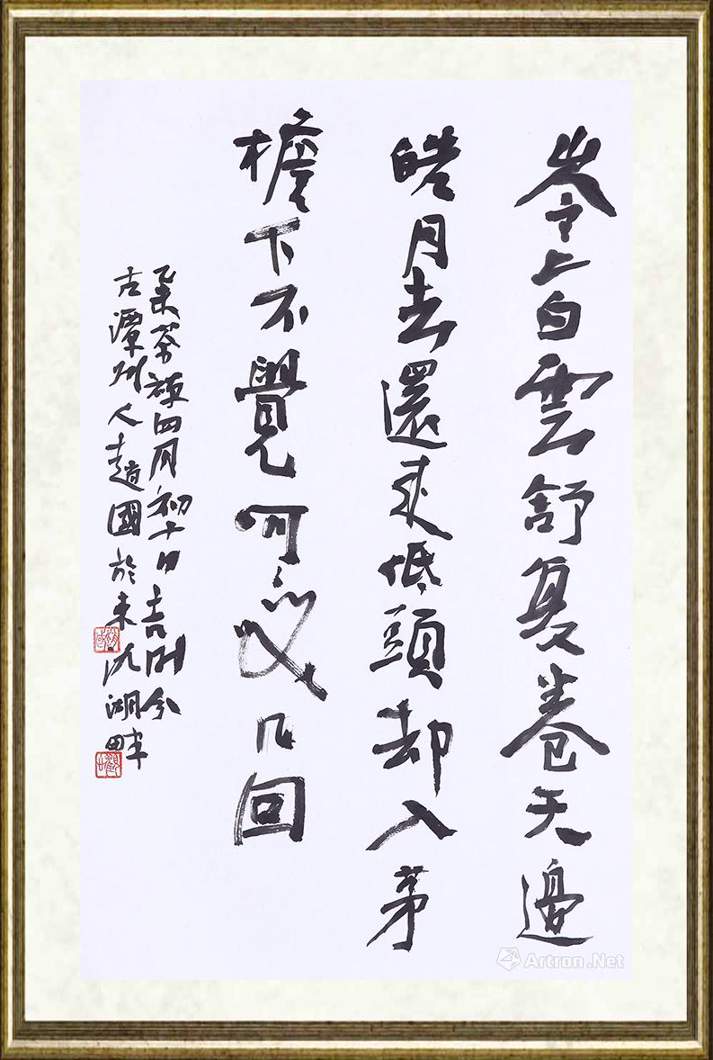 岺上白雲舒复卷天邊
皓月去還来低頭却入茅
檐下不覺呵〻笑几回
乙未四月初十日吉时分
古潭州人趙國於湖畔
Artron.Net